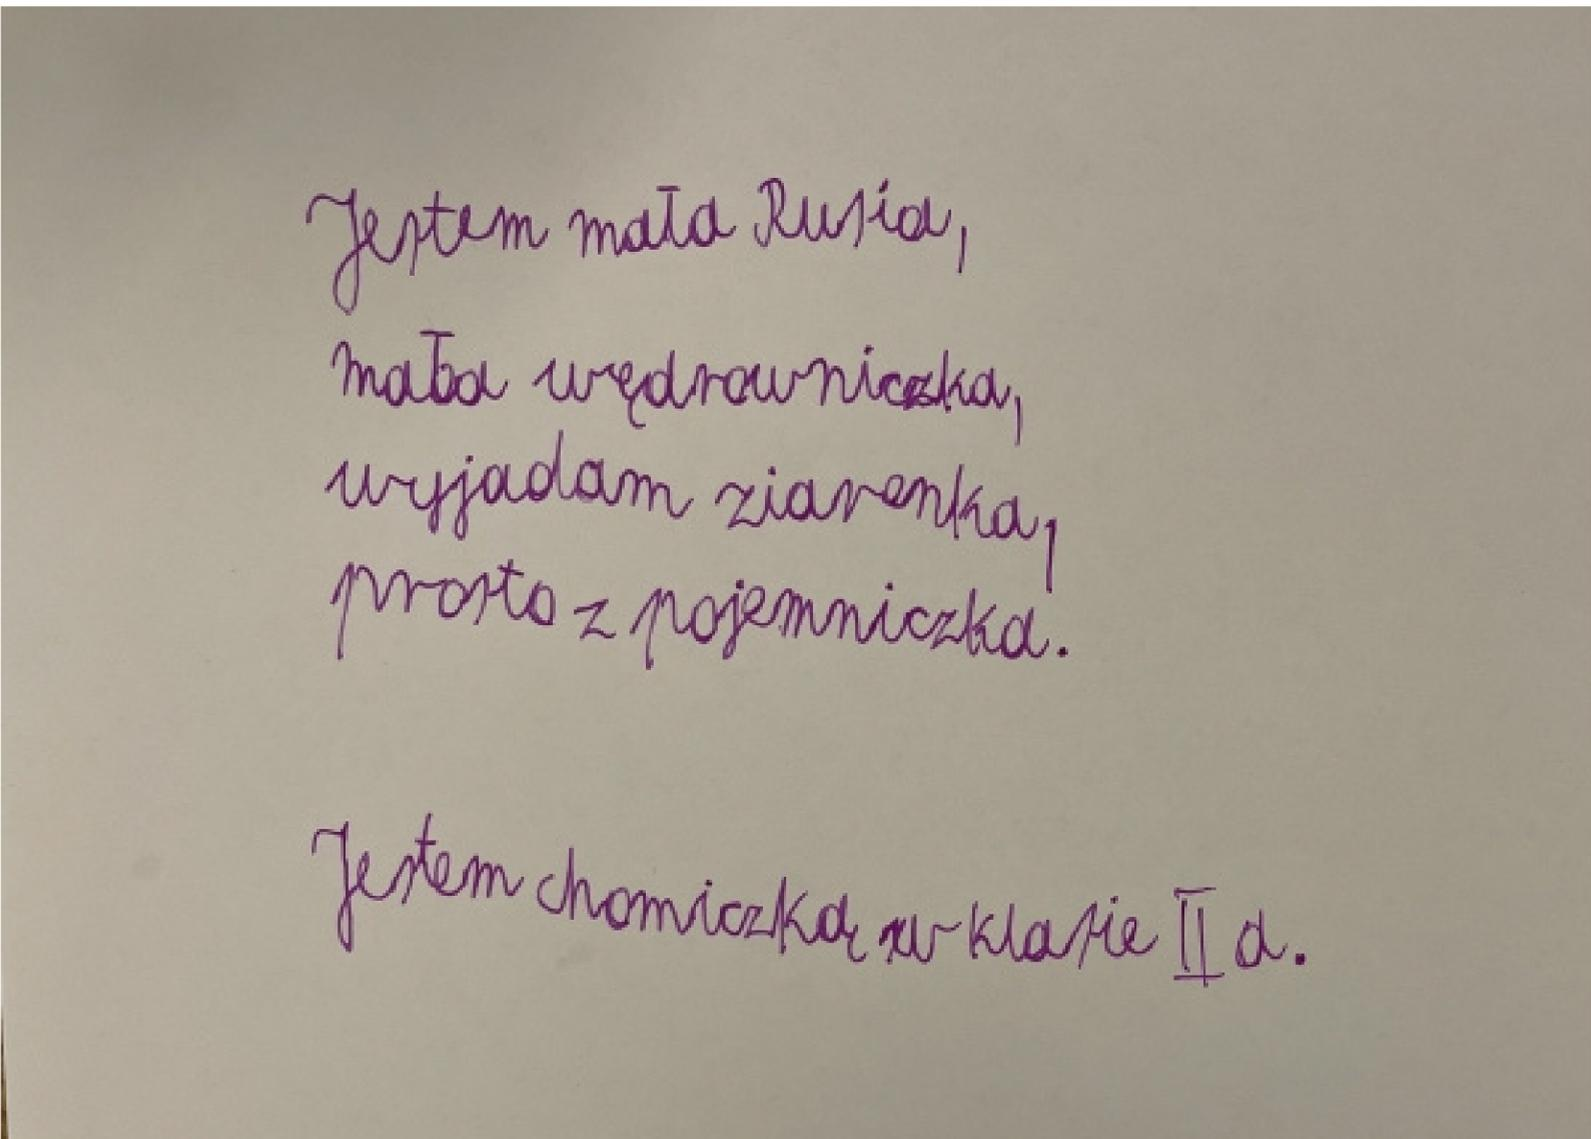 Jestem mała Rusia,
mała wędrowniczka,
wyjadam ziarenka,
prosto z pojemniczka.
Jestem chomiczką w klasie II a.